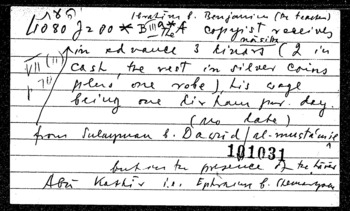 Ibrahim b. Benjamin (the teacher)
1080 J 200 * B III A copyist receives
in advance 3 dinars (2 in
cash, the rest in silver coins
plus one robe), his wage
being one dirham per day.
(no date)
from Sulayman b. David / al-
101031
but in the presence of the
Abū Kathīr i.e. Ephraim b. Shemarya